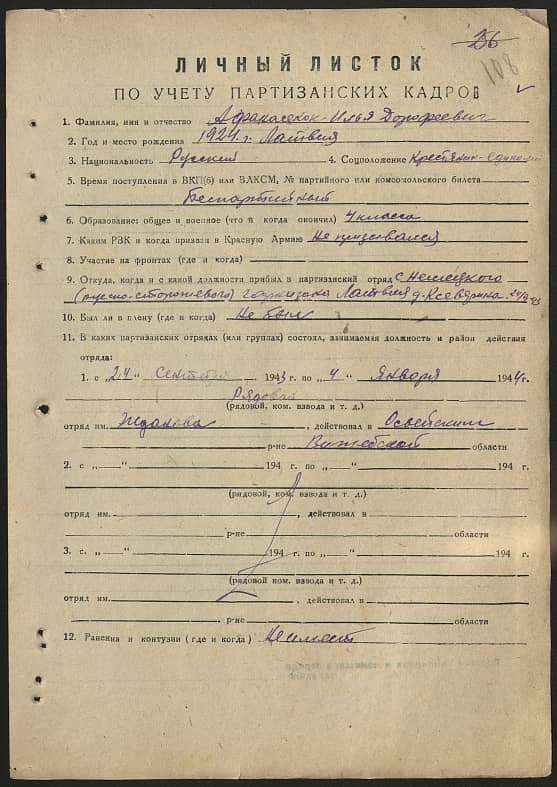 26
108
ЛИЧНЫЙ ЛИСТОК
ПО УЧЕТУ ПАРТИЗАНСКИХ КАДРОВ
1. Фамилия, имя и отчество Афанасенок Илья Дорофеевич
2. Год и место рождения 1924 г. Латвия
3. Национальность Русский 4. Соцположение Крестянин-единол
5. Время поступления в ВКП(б) или ВЛКСМ, № партийного или комсомольского билета
Беспартийный
6. Образование: общее и военное (что и когда окончил) 4 класса
7. Каким РВК и когда призван в Красную Армию Не призывался
8. Участие на фронтах (где и когда)
9. Откуда, когда и с какой должности прибыл в партизанский отряд С Немецкого
гарнизона Латвия д.
10. Был ли в плену (где и когда) Не был
11. В каких партизанских отрядах (или группах) состоял, занимаемая должность и район действия
отряда:
1. с „24 Сентября 1943 г. по „4 " Января 1944 г.
Рядовой
(рядовой, ком. взвода и т. д.)
отряд им. Жданова, действовал в Освейским
р-не Витебской области
2. с „ " 194 г. по „ " 194 г.
(рядовой, ком. взвода и т. д.)
отряд им. , действовал в
р-не области
3. с „ " 194 г. по „ " 194 г.
(рядовой ком. взвода и т. д.)
отряд им. , действовал в
р-не области
12. Ранения и контузии (где и когда) Не имеет